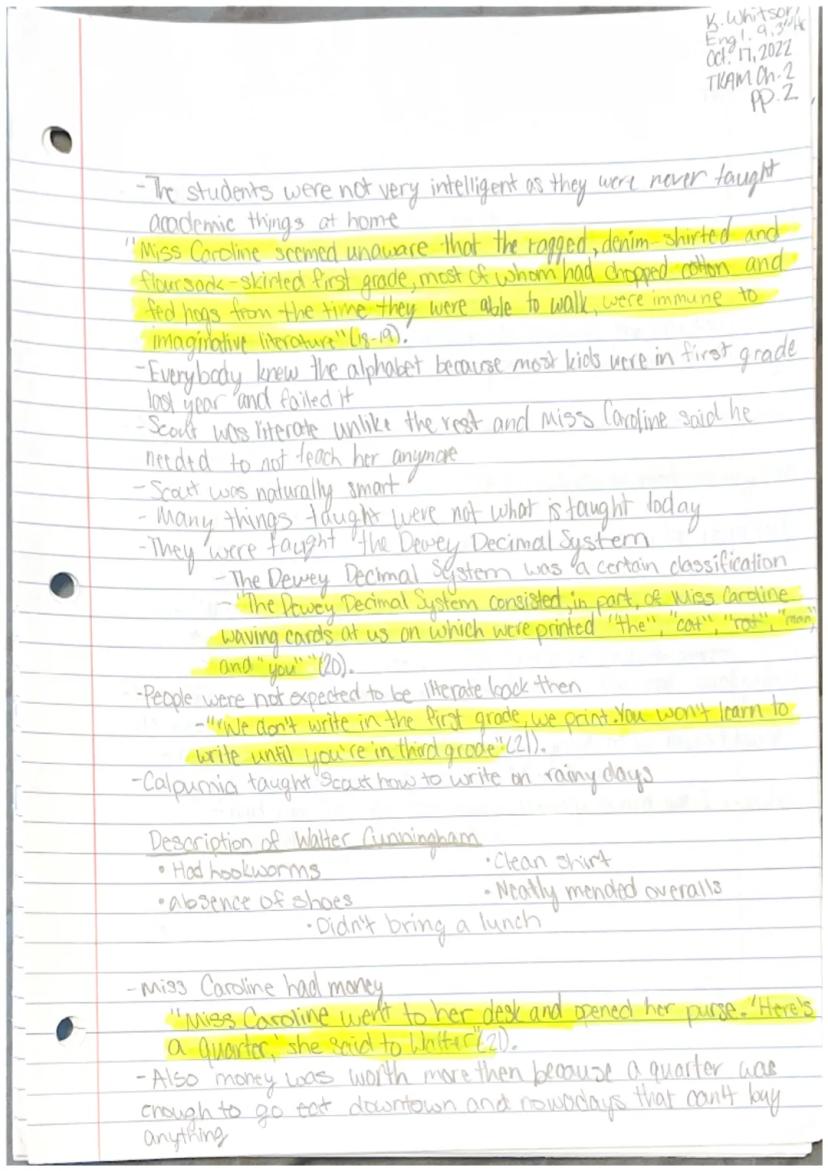 K. Whitson
Engl. 9, 3rd Hr
Oct. 17, 2022
TKAM Ch. 2
pp. 2
- The students were not very intelligent as they were never taught
academic things at home
"Miss Caroline seemed unaware that the ragged, denim-shirted and
floursack-skirted first grade, most of whom had chopped cotton and
fed hogs from the time they were able to walk, were immune to
imaginative literature" (18-19).
- Everybody knew the alphabet because most kids were in first grade
last year and failed it
- Scout was literate unlike the rest and Miss Caroline said he
needed to not teach her anymore
- Scout was naturally smart
- Many things taught were not what is taught today
- They were taught the Dewey Decimal System
- The Dewey Decimal System was a certain classification
- "The Dewey Decimal System consisted, in part, of Miss Caroline
waving cards at us on which were printed "the", "cat", "rat", "man",
and "you"" (20).
- People were not expected to be literate back then
- "We don't write in the first grade, we print. You won't learn to
write until you're in third grade" (21).
- Calpurnia taught Scout how to write on rainy days
Description of Walter Cunningham
• Had hookworms
• Clean shirt
• absence of shoes
• Neatly mended overalls
• Didn't bring a lunch
- Miss Caroline had money
"Miss Caroline went to her desk and opened her purse. 'Here's
a quarter,' she said to Walter" (21).
- Also money was worth more then because a quarter was
enough to go eat downtown and nowadays that can't buy
anything